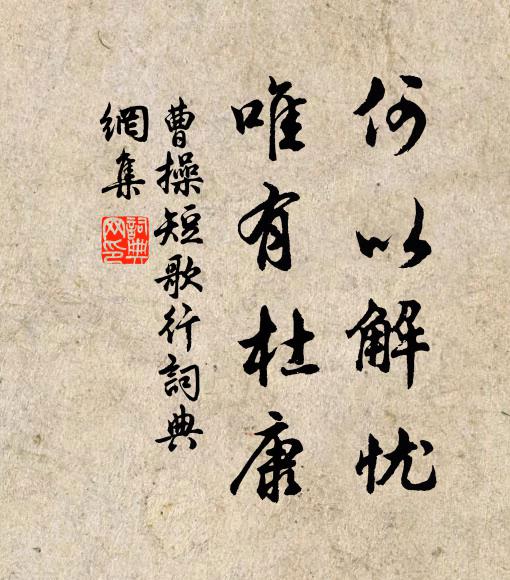 何以解忧
唯有杜康
曹操短歌行詞典
網集
詞典
网印